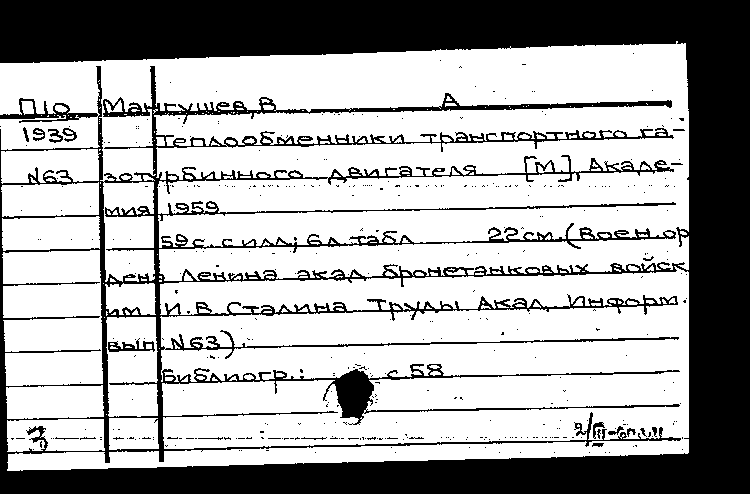 П10 Мангушев, В А
1939 Теплообменники транспортного га-
N63 зотурбинного двигателя [М.], Акаде-
мия, 1959.
59 с. с илл; 6 л табл 22 см. (Воен. ор
дена Ленина акад бронетанковых войск
им. И.В. Сталина Труды Акад. Информ.
вып. N63).
Библиогр.: с 58
3